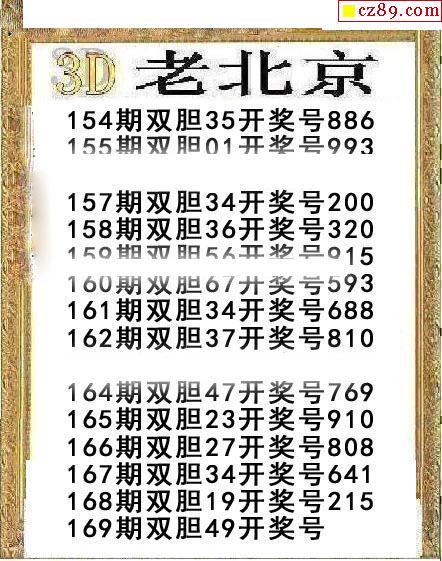 cz89.com
3D 老北京
154期双胆35开奖号886
155期双胆01开奖号993
157期双胆34开奖号200
158期双胆36开奖号320
159期双胆56开奖号915
160期双胆67开奖号593
161期双胆34开奖号688
162期双胆37开奖号810
164期双胆47开奖号769
165期双胆23开奖号910
166期双胆27开奖号808
167期双胆34开奖号641
168期双胆19开奖号215
169期双胆49开奖号